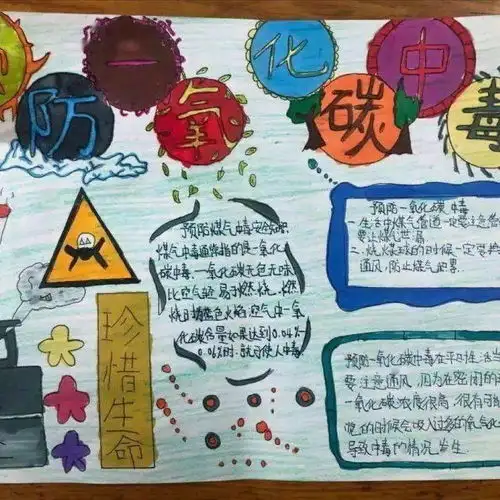 防一氧化碳中毒
预防煤气中毒
煤气中毒通常指的是一氧化
碳中毒,一氧化碳无色无味
比空气轻,易于燃烧,燃
烧时 蓝色火焰,空气中一氧
化碳含量如果达到0.04%
0.06%时,就可使人中毒
珍惜生命
预防一氧化碳中毒
一.生活中煤气管道一定要注意
要让煤气泄漏
二.烧煤球的时候一定要
通风,防止煤气
预防一氧化碳中毒在平时生活
要注意通风,因为在密闭的
一氧化碳浓度很高,很有可
的时候会吸入过多的
导致中毒的情况发生.